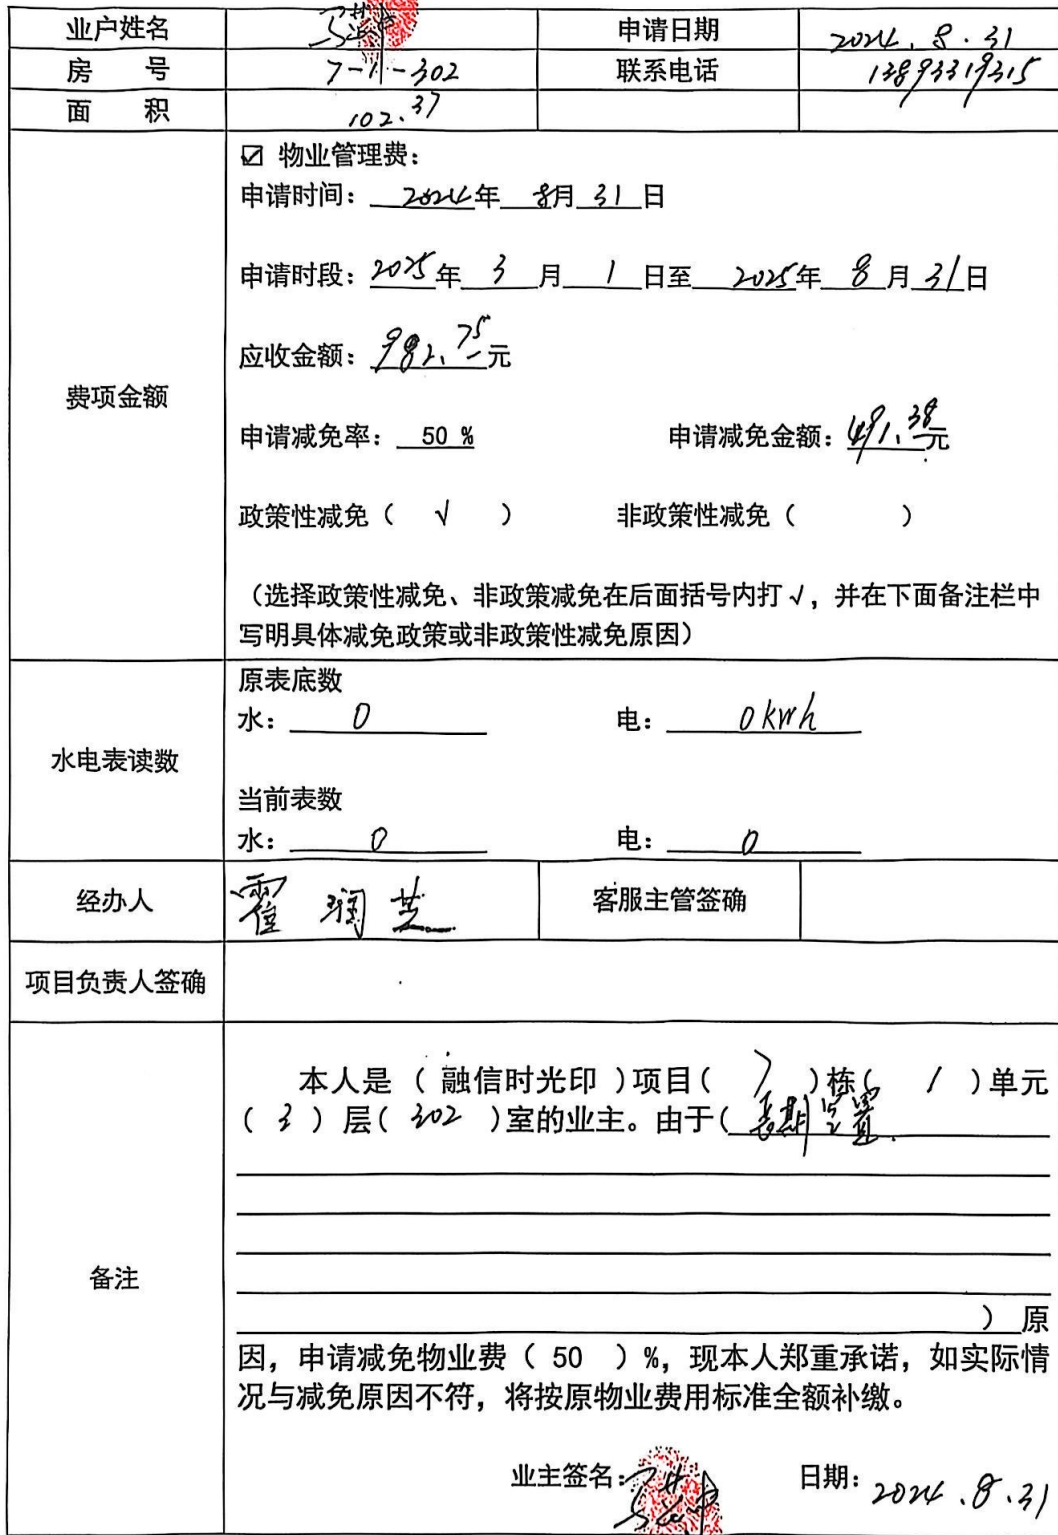 业户姓名 申请日期 2024.8.31
房 号 7-1-302 联系电话 13893319315
面 积 102.37
费项金额
☑ 物业管理费:
申请时间: 2024年 8月 31 日
申请时段: 2025年 3 月 1 日至 2025年 8 月 31日
应收金额: 982.75元
申请减免率: 50 % 申请减免金额: 491.38元
政策性减免( √ ) 非政策性减免( )
(选择政策性减免、非政策减免在后面括号内打√,并在下面备注栏中
写明具体减免政策或非政策性减免原因)
水电表读数
原表底数
水: 0 电: 0 kwh
当前表数
水: 0 电: 0
经办人 霍润芝 客服主管签确
项目负责人签确
备注
本人是 ( 融信时光印 )项目( 7 )栋( 1 )单元
( 3 ) 层( 302 )室的业主。由于( 长期空置.
) 原
因,申请减免物业费( 50 )%,现本人郑重承诺,如实际情
况与减免原因不符,将按原物业费用标准全额补缴。
业主签名: 日期: 2024.8.31